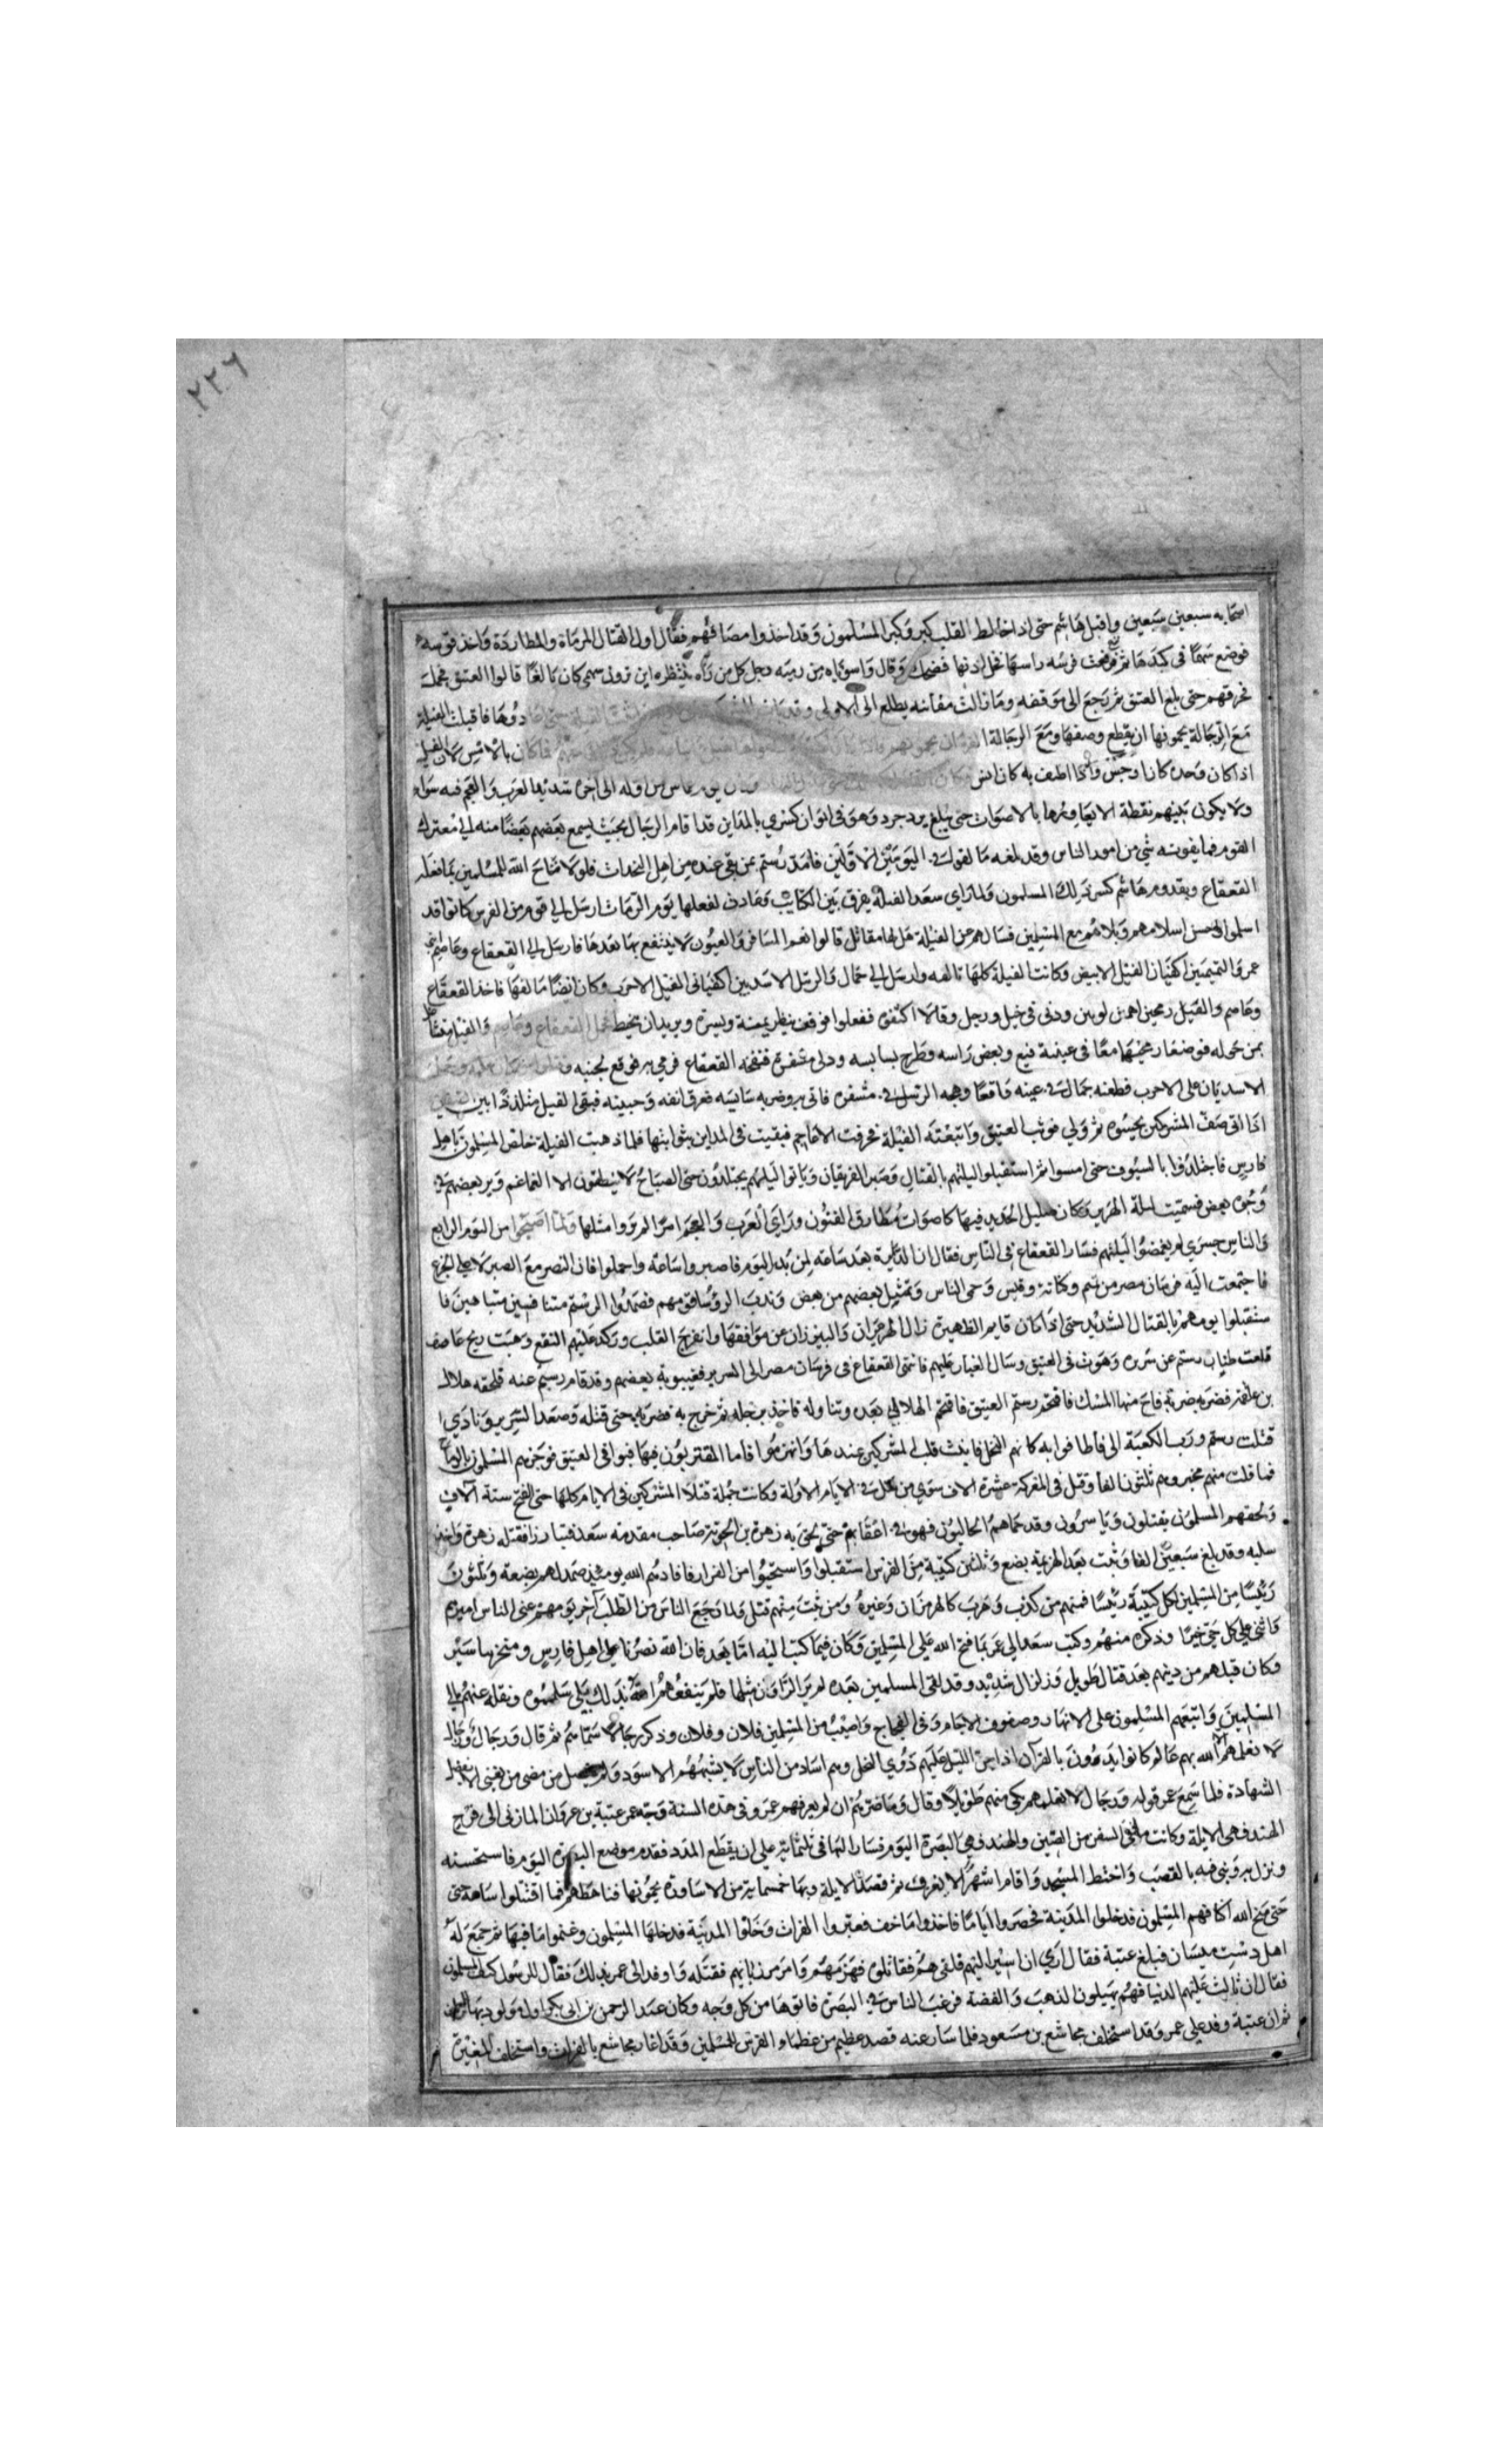 ٢٢٦
اصحابه سبعين سبعين واقبل هاشم حتى اذا خالط القلب كبر وكبر المسلمون وقد اخذوا مصافهم فقال اول القتال المرماة والمطاردة واخذ قوسه
فوضع سهما فى كبدها ثم فرفعت فرسه راسها فخل اذنها فضحك وقال واسوتاه من رميه رجل كل من رآه ينتظره اين ترون سهمى كان بالغا قالوا العتيق فحمل
فحرقهم حتى بلغ العتيق ثم رجع الى موقفه وما زالت مقانبه يطلع الى الاولى وقد فاقبلت الفيلة
مع الرجالة يحمونها ان يقطع وضفها ومع الرجالة بالامس لان الفيل
اذا كان وحده كان اوحش واذا اطيف به كان انس من اوله الى اخره شديدا العرب والعجم فيه سواء
ولا يكون بينهم نقطة الا يعاورها بالاصوات حتى يبلغ يزدجرد وهو فى ايوان كسرى بالمداين قد اقام الرجال بحيث يسمع بعضهم بعضا منه الى معترك
القوم فما يفوته شى من امور الناس وقد بلغه ما لقوا فى اليومين الاولين فامد رستم بمن بقى عنده من اهل النجدات فلولا ما تاح الله للمسلمين بما فعله
القعقاع وبقدوم هاشم كسر ذلك المسلمون ولما راى سعد الفيلة يفرق بين الكتايب وعادت لفعلها يوم ارماث ارسل الى قوم من الفرس كانوا قد
اسلموا وحسن اسلامهم وبلاهم مع المسلمين فسالهم عن الفيلة هل لها مقاتل قالوا نعم المشافر والعيون لا ينتفع بها بعدها فارسل الى القعقاع وعاصم بن
عمر والتميمين اكفيان الفيل الابيض وكانت الفيلة كلها تالفه وارسل الى حمال والربل الاسديين اكفيانى الفيل الاجرب وكان ايضا مالفها فاخذ القعقاع
وعاصم والفيل رمحين اصمين لينين ودنى فى خيل ورجل وقالا اكتنفوه ففعلوا فوقف ينظر يمنة ويسرة ويريدان يخبط فحمل القعقاع وعاصم والفيل
بمن حوله فوضعا رمحيهما معا فى عينيه فقبع ونفض راسه وطرح سايسه ودلى مشفره فنفحه القعقاع فرمى به فوقع لجنبه
الاسديان على الاجرب فطعنه حمال فى عينه فاقعى وضربه الربل فى مشفره فاتى بروضربه سايسه فخرق انفه وجبينه فبقى الفيل متلددا بين
اذا اتى صف المشركين نخسوه ثم ولى فوثب العتيق واتبعته الفيلة فخرقت الاعاجم فبقيت فى المداين بتوابيتها فلما ذهبت الفيلة خلص المسلمون باهل
فارس فاجتلدوا بالسيوف حتى امسوا ثم استقبلوا ليلتهم بالقتال وصبر الفريقان وباتوا ليلتهم يجتلدون حتى الصباح لا ينطقون الا الغماغم وير بعضهم فى
وجوه بعض فسميت ليلة الهرير وكان صليل الحديد فيها كاصوات مطارق القيون وراى العرب والعجم امرا لم يروا مثلها ولما اصبحوا من اليوم الرابع
والناس حسرى لم يغمضوا ليلتهم فسار القعقاع فى الناس فقال ان الدايرة بعد ساعة لمن بدا اليوم فاصبروا ساعة واحملوا فان النصر مع الصبر لا مع الجزع
فاجتمعت اليه فرسان مصر من تميم وكنانة وقيس وحمى الناس وتمثيل بعضهم من بعض وندب الروسا قومهم فصمدوا الى رستم متنافسين متباهين فا
ستقبلوا يومهم بالقتال الشديد حتى اذا كان قايم الظهيرة زال الهرمزان والبيرزان عن موافقها وانفرج القلب وركد عليهم النقع وهبت ريح عاصف
قلعت طنيان رستم عن سريره وهوت فى العتيق وسال الغبار عليهم فانتهى القعقاع فى فرسان مصر الى السرير فغيبوبة بعضهم وقد قام رستم عنه فلحقه هلال
بن علقمة فضربه ضربة فاح منها المسك فاقتحم رستم العتيق فاقتحم الهلالى بعده وتناوله فاخذ برجله ثم خرج به فضربه حتى قتله وصعد السرير ونادى
قتلت رستم ورب الكعبة الى فاطافوا به كانهم النحل فانبث قلب المشركين عندها وانهزموا فاما المقتربون فيها فبوا فى العتيق فوخزهم المسلمون بالرماح
فما فلت منهم مخبر وهم ثلثون الفا وقتل فى المعركة عشرة الاف سوى من قتل فى الايام الاولة وكانت جملة قتلا المشركين فى الايام كلها حتى الفتح ستة آلاف
ولحقهم المسلمون يقتلون وياسرون وقد حماهم الجاليون فهو فى اعقابهم حتى لحق به زهرة بن الحوية صاحب مقدمة سعد فتبارزا فقتله زهرة واخذ
سلبه وقد بلغ سبعين الفا وثبت بعد الهزيمة بضع وثلثين كتيبة من الفرس استقبلوا واستحيوا من الفرار فافادتهم الله يومئذ صمد لهم بضعة وثلثون
رئيسا من المسلمين لكل كتيبة رئيسا فمنهم من كذب وهرب كالهرمزان وغيره ومن ثبت منهم قتل ولما رجع الناس من الطلب اخر يومهم عنى الناس اميرهم
فاثنى على كل حى خيرا وذكره منهم وكتب سعد الى عمر بما فتح الله على المسلمين وكان فيما كتب اليه اما بعد فان الله نصرنا على اهل فارس ومنحهم سير
وكان قبلهم من دينهم بعد قتال طويل وزلزال شديد وقد لقى المسلمين بعده لم ير الراون مثلها فلم ينفعهم الله بذلك بل سلبهموه ونقله عنهم الى
المسلمين واتبعهم المسلمون على الانهار وصفوف الاجام وفى الفجاج واصيب من المسلمين فلان وفلان وذكر رجالا سماهم ثم قال ورجال
لا نعلمهم الله بهم عالم كانوا يدوون بالقرآن اذا جن الليل عليهم دوى النحل وهم اساد من الناس لا يشبههم الاسود ولم يفضل من مضى من بقى الا بفضل
الشهادة فلما سمع عمر قوله ورجال لا نعلمهم بكى منهم طويلا وقال وما ضرهم ان لم يعرفهم عمر وفى هذه السنة وجه عمر عتبة بن غزوان المازنى الى فرج
الهند فهى الابلة وكانت مرفى السفن من الصين والهند فهى البصرة اليوم فسار اليها فى ثلثماية على ان يقطع المدد فقدم موضع البصرة اليوم فاستحسنه
ونزل به وبنى فيه بالقصب واختط المسجد واقاما اشهرا لا يعرف ثم قصد الابلة وبها خمسماية من الاساورة يحمونها فناهظهم فما اقتتلوا ساعة حتى
حتى منح الله اكتافهم المسلمون فدخلوا المدينة فحصروا اياما فاخذوا ما خف فعبروا الفرات وخلوا المدينة فدخلها المسلمون وغنموا ما فيها ثم جمع له
اهل دست ميسان فبلغ عتبة فقال ارى ان اسير اليهم فلقى هم فقاتلوه فهزمهم وامر مرزبانهم فقتله واوفد الى عمر بذلك فقال للرسول كيف المسلمون
فقال انثالت عليهم الدنيا فهم يهيلون الذهب والفضة فرغب الناس فى البصرة فاتوها من كل وجه وكان عبد الرحمن بن ابى بكر اول مولود بها
ثم ان عتبة وفد على عمر وقد استخلف مجاشع بن مسعود فلما سار عنه قصد عظيم من عظماء الفرس المسلمين وقد اغار مجاشع بالفرات واستخلف المغيرة